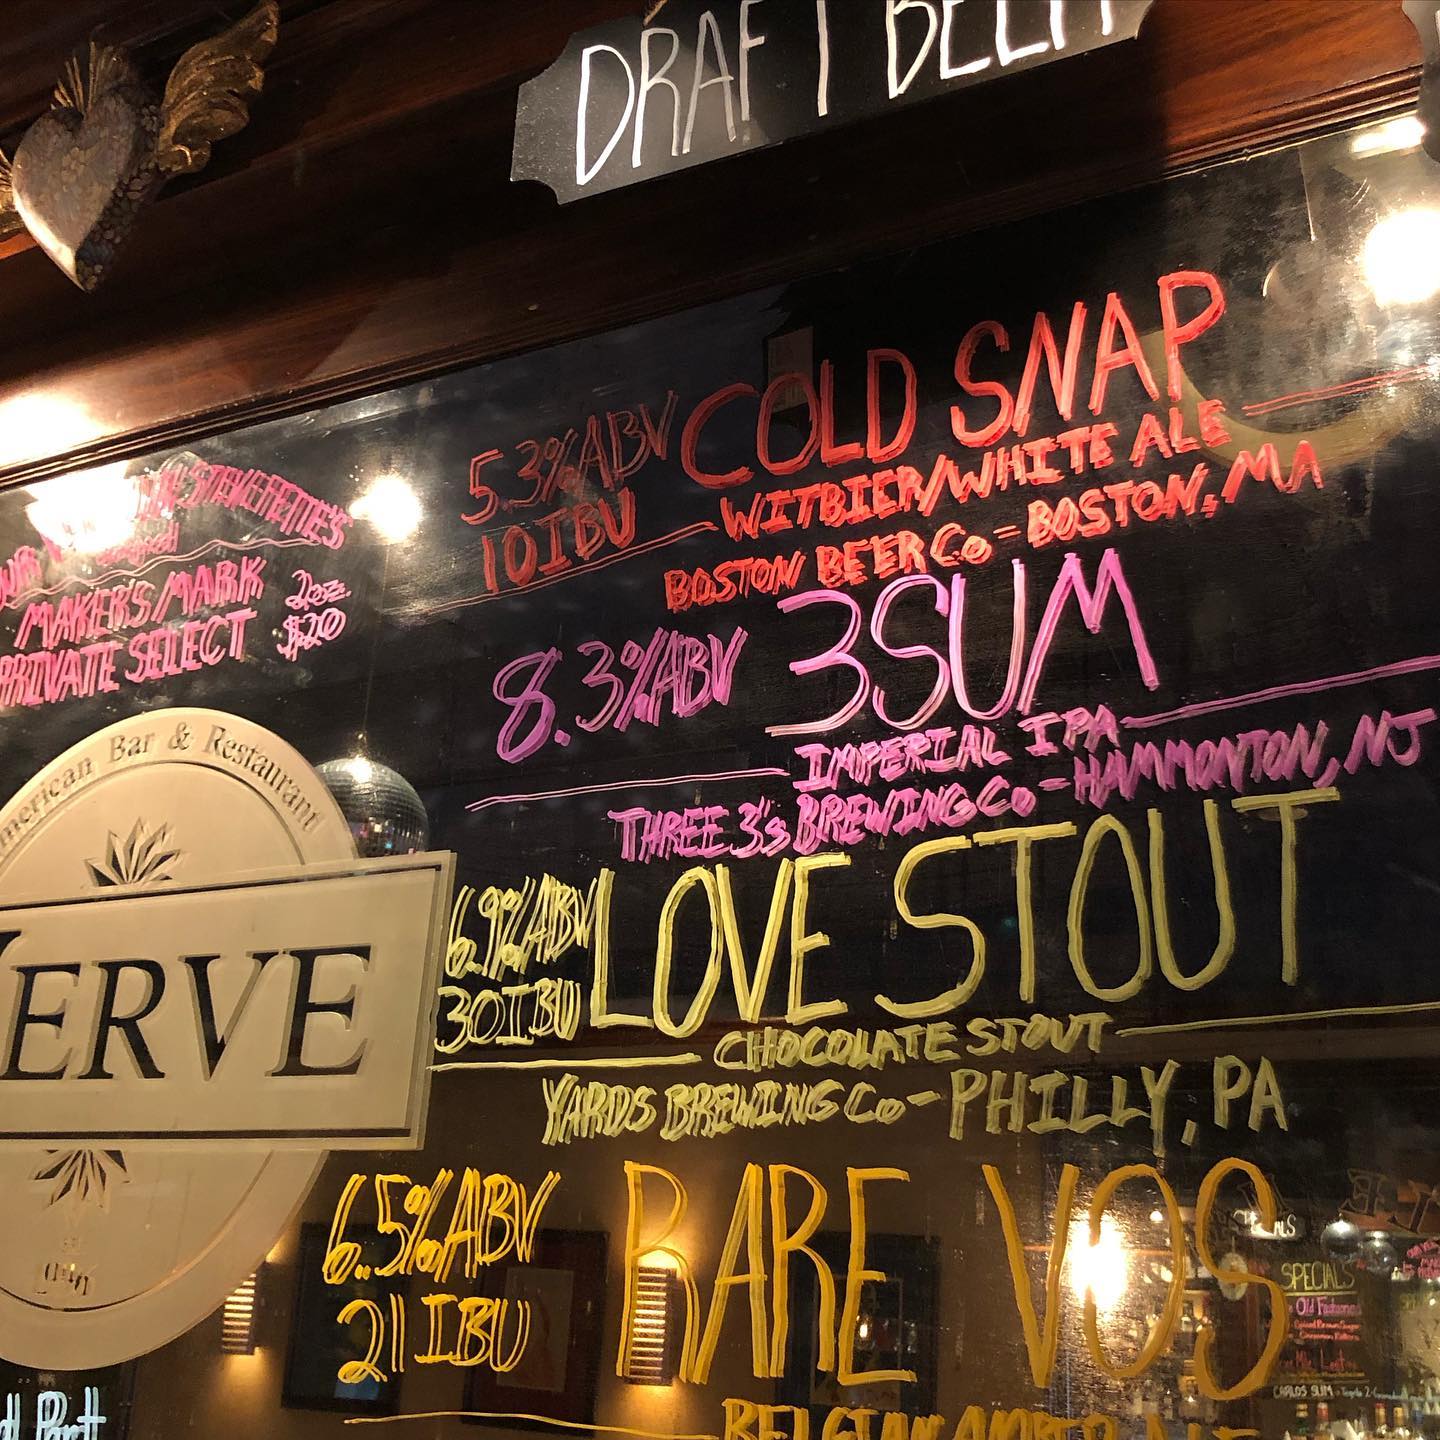 DRAFT BEER
5.3%ABV COLD SNAP
10IBU WITBIER/WHITE ALE
BOSTON BEER Co - BOSTON, MA
8.3%ABV 3SUM
IMPERIAL IPA
THREE 3's BREWING Co - HAMMONTON, NJ
6.9%ABV LOVE STOUT
30IBU
CHOCOLATE STOUT
YARDS BREWING Co - PHILLY, PA
6.5%ABV RARE VOS
21 IBU
BELGIAN AMBER ALE
MAKER'S/MARK 2oz.
PRIVATE SELECT $20
merican Bar & Restaurant
VERVE
SPECIALS
Old Fashioned